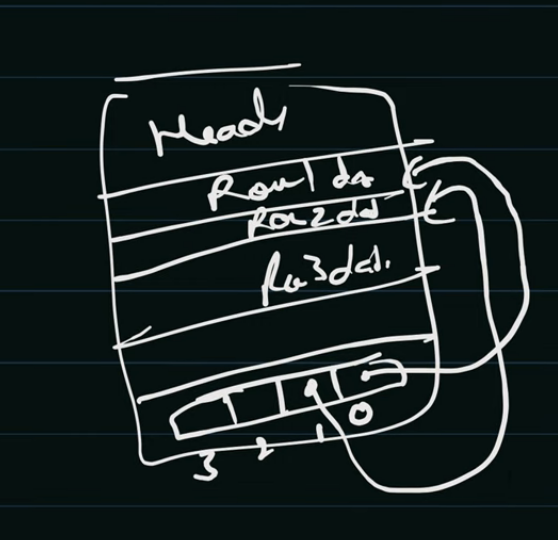 Head
Row 1 da
Row 2 dat
Ro 3 dat.
3 2 1 0